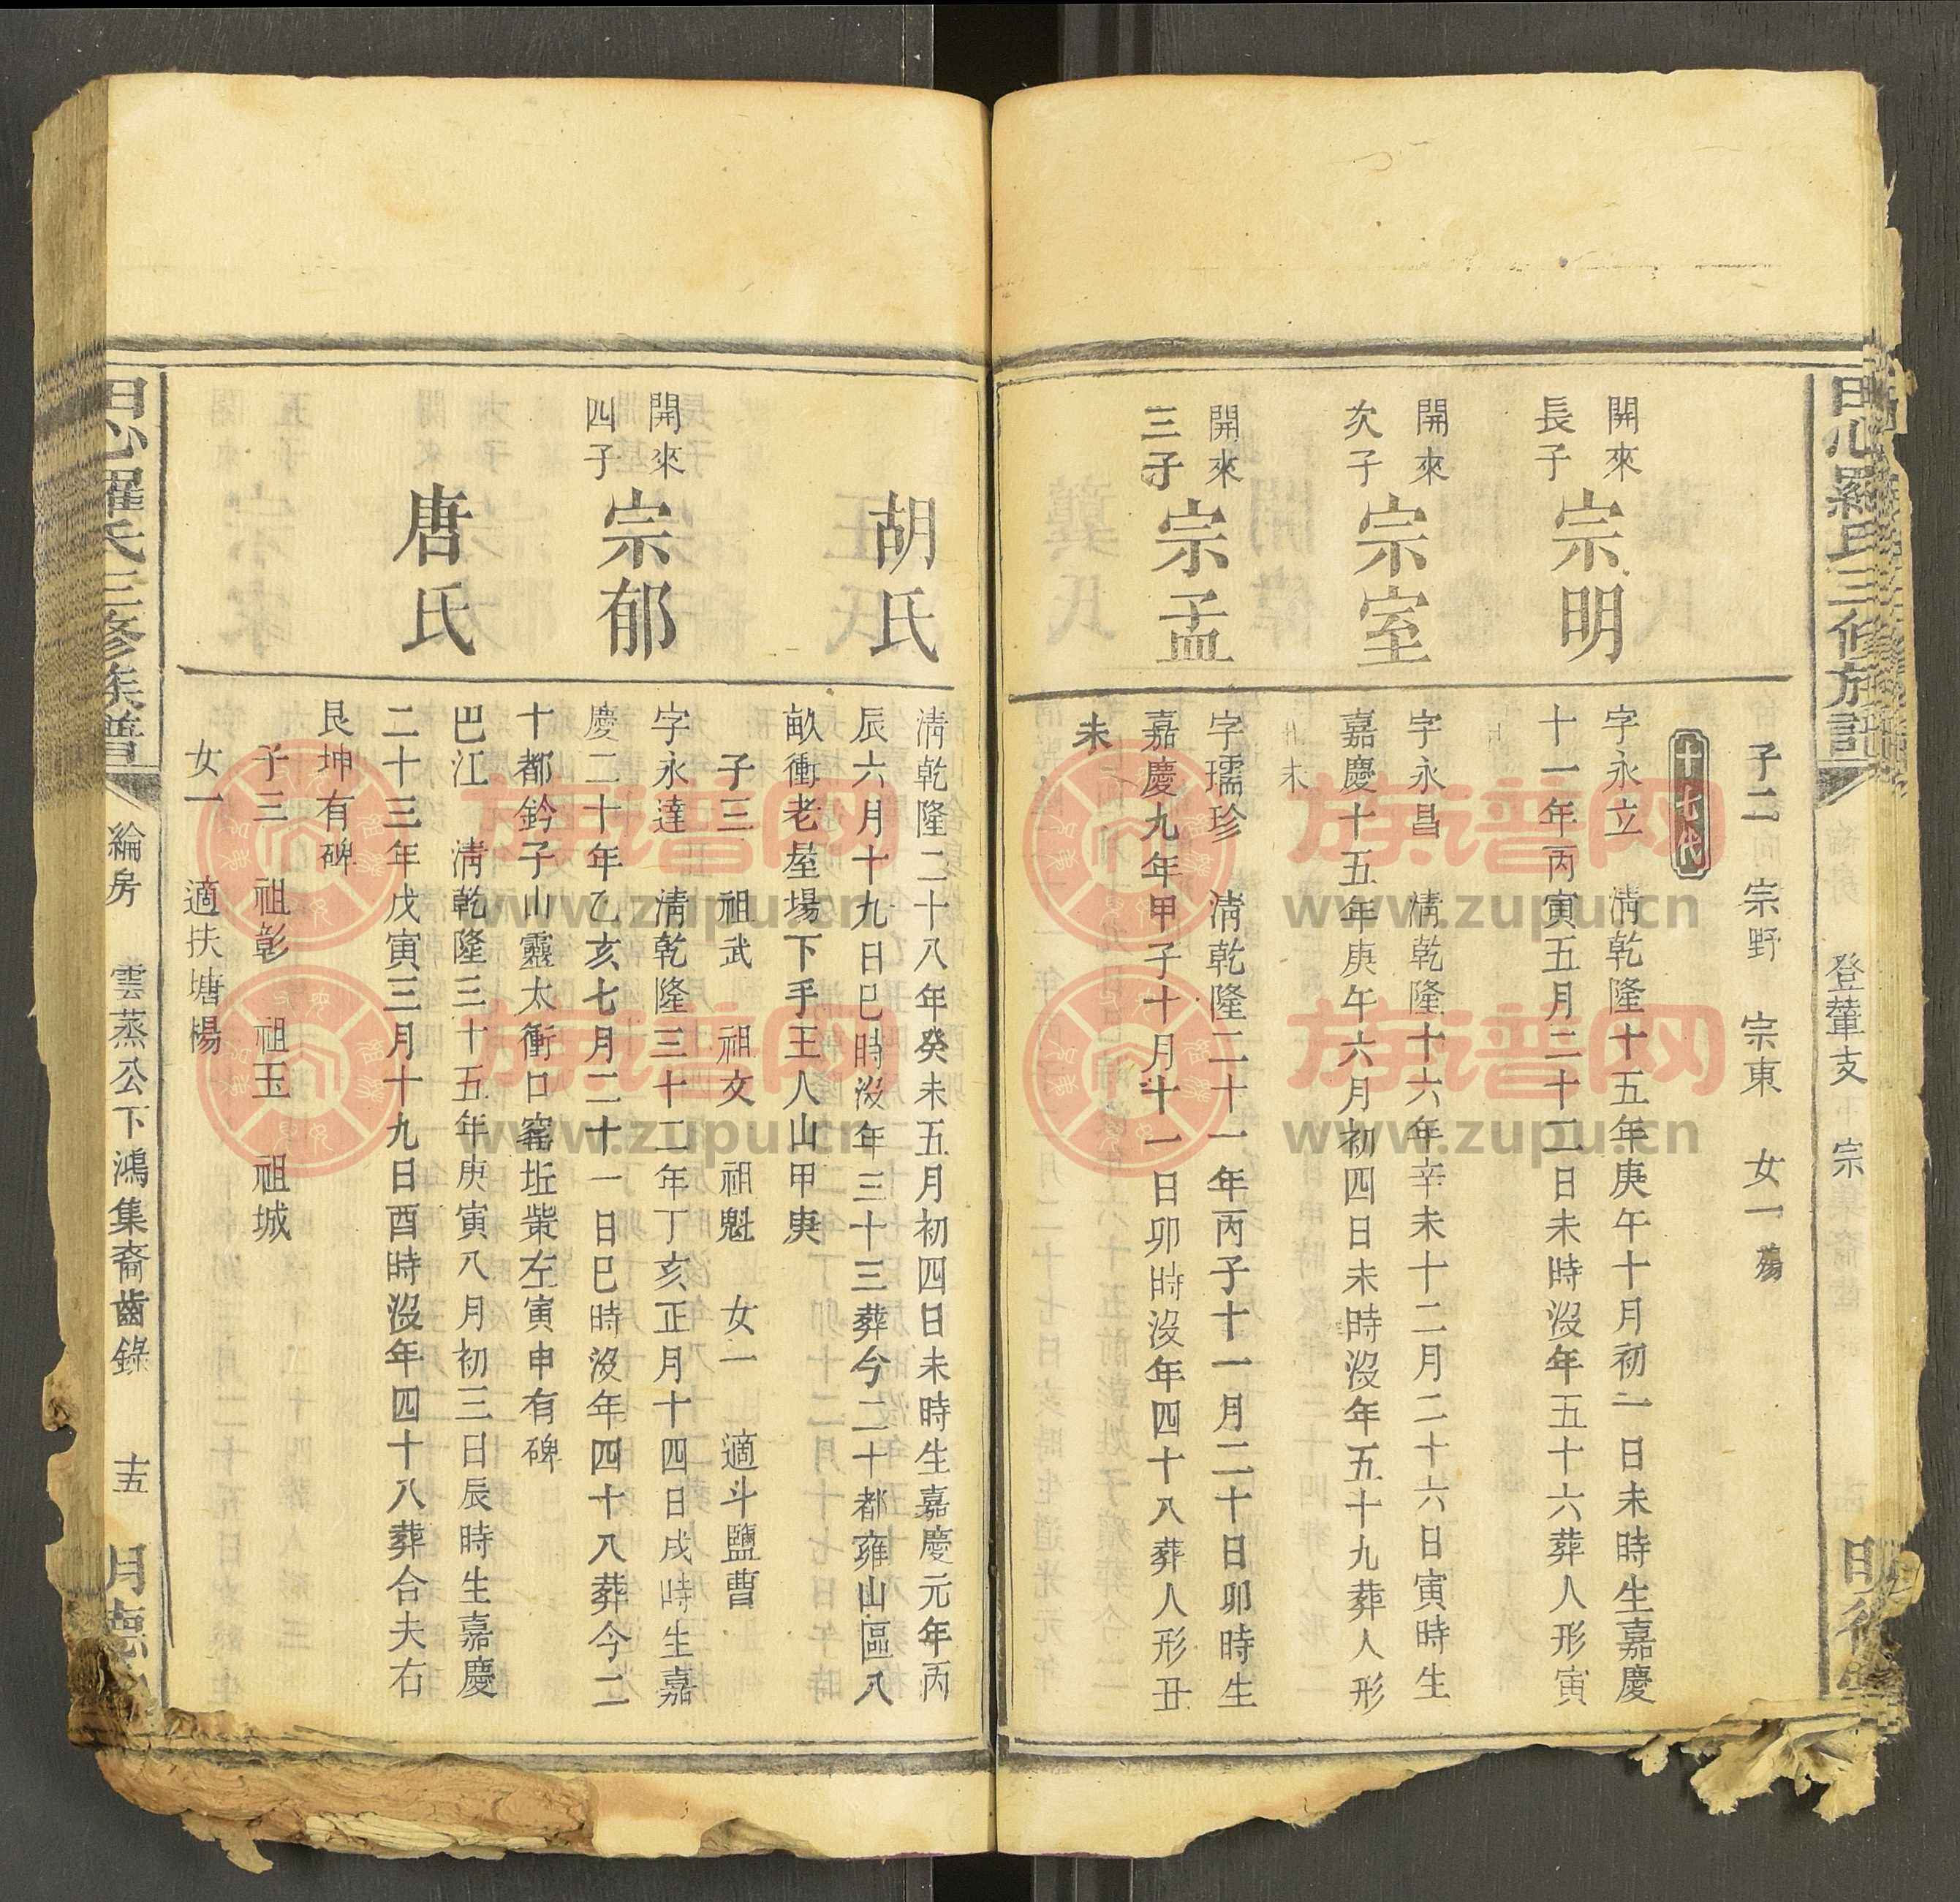 羅氏三修族譜
登輦支
宗
子二 宗野 宗東 女一殤
十七代
開來
長子
宗明
字永立 淸乾隆十五年庚午十月初一日未時生嘉慶
十一年丙寅五月二十二日未時沒年五十六葬人形寅
開來
次子
宗室
字永昌 淸乾隆十六年辛未十二月二十六日寅時生
嘉慶十五年庚午六月初四日未時沒年五十九葬人形
未
開來
三子
宗孟
字瑈珍 淸乾隆二十一年丙子十一月二十日卯時生
嘉慶九年甲子十月廿一日卯時沒年四十八葬人形丑
未
胡氏
淸乾隆二十八年癸未五月初四日未時生嘉慶元年丙
辰六月十九日巳時沒年三十三葬今二十都雍山區八
畝衝老屋場下手王人山甲庚
子三 祖武 祖文 祖魁 女一 適斗鹽曹
開來
四子
宗郁
字永達 淸乾隆三十二年丁亥正月十四日戌時生嘉
慶二十年乙亥七月二十一日巳時沒年四十八葬今二
十都鈐子山靈太衝口窰坵柴左寅申有碑
唐氏
巴江 淸乾隆三十五年庚寅八月初三日辰時生嘉慶
二十三年戊寅三月十九日酉時沒年四十八葬合夫右
艮坤有碑
子三 祖彰 祖玉 祖城
女一 適扶塘楊
羅氏三修族譜
綸房 雲蒸公下鴻集裔齒錄 十五
族谱网
www.zupu.cn
族谱网
www.zupu.cn
族谱网
www.zupu.cn
族谱网
www.zupu.cn